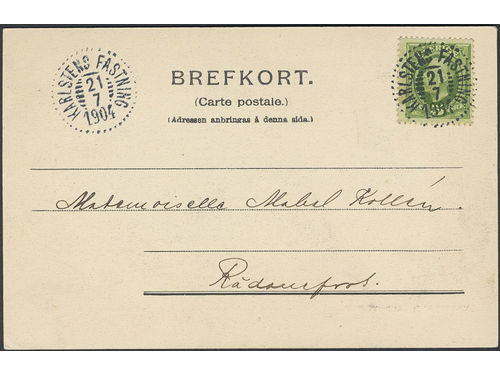 KARLSTENS FÄSTNING
21
7
1904
KARLSTENS FÄSTNING
21
7
BREFKORT.
(Carte postale.)
(Adressen anbringas å denna sida.)
Matemoisella Mabel Kollén.